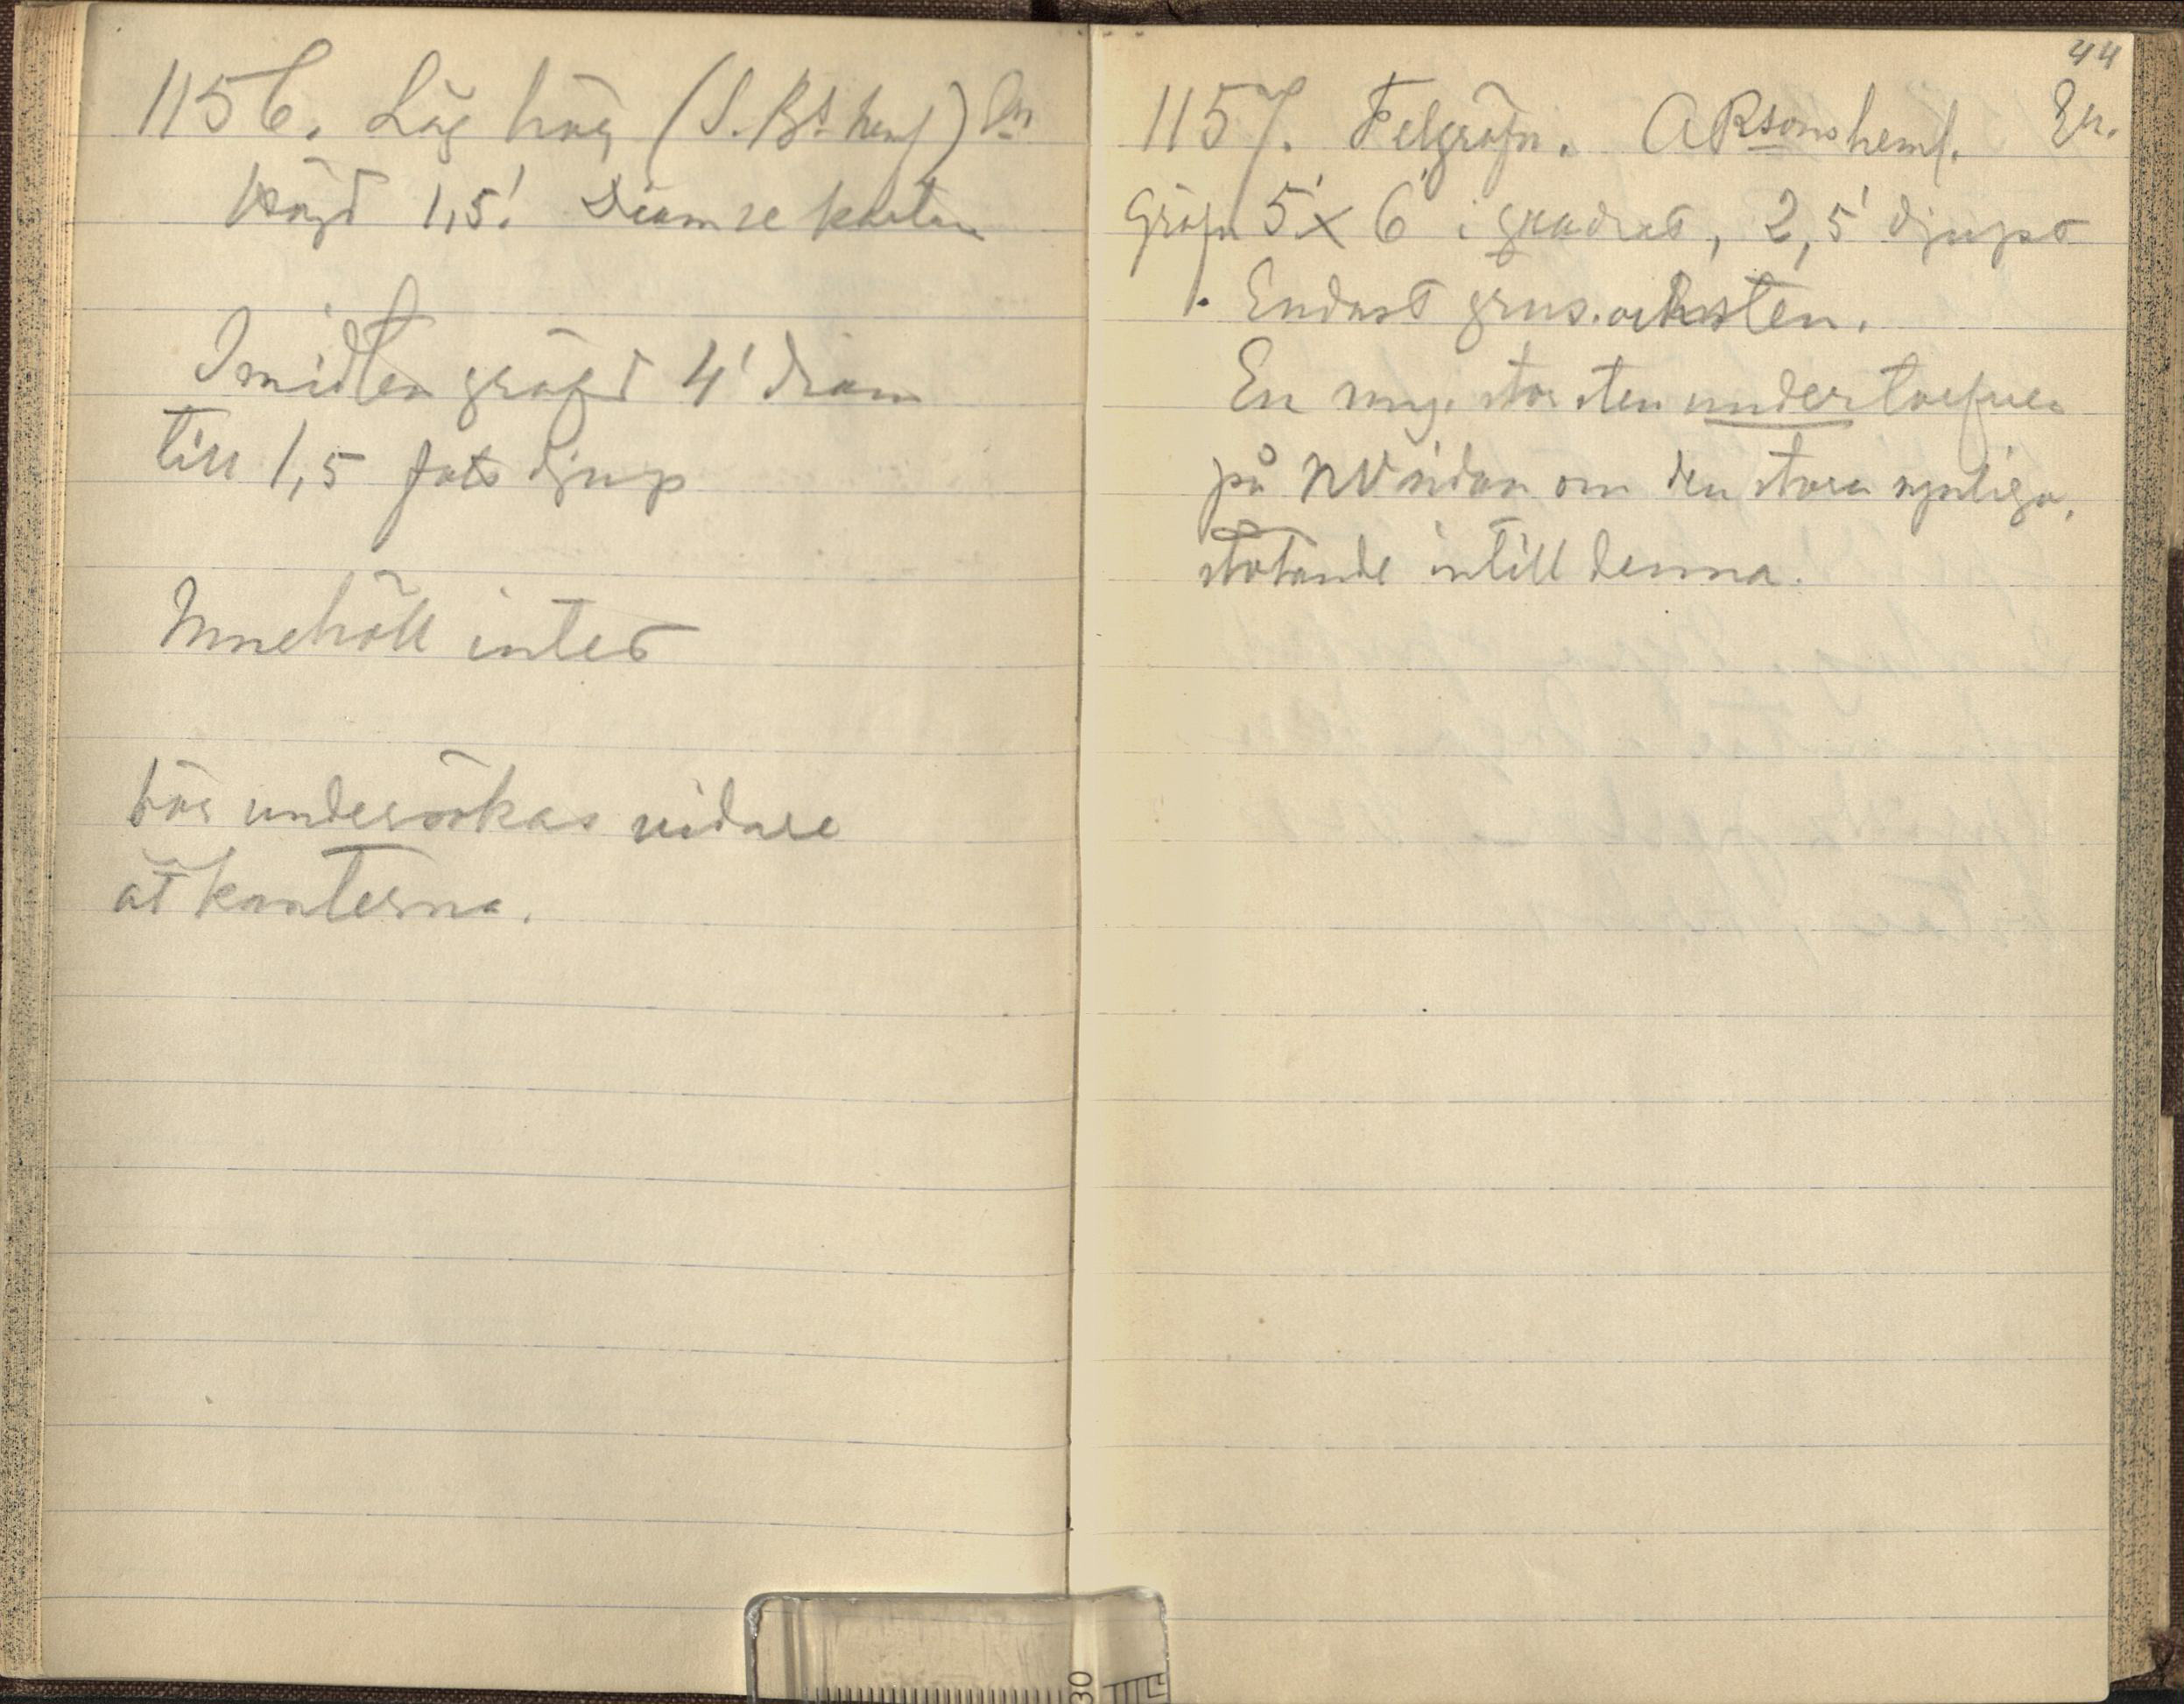 1156. Låg hög (S. Bs. heml)
Höjd 1,5'. Diam se kartan
I midten gräfd 4' diam
till 1,5 fots djup
Innehöll intet
bör undersökas vidare
åt kanterna.
44
1157. Felgräfn. ARsons heml. En.
Gräfn 5' x 6' i quadrat, 2,5' djupt
Endast grus. och sten.
En myc. stor sten under torfven
på NV sidan om den stora synliga,
stötande intill denna.
30